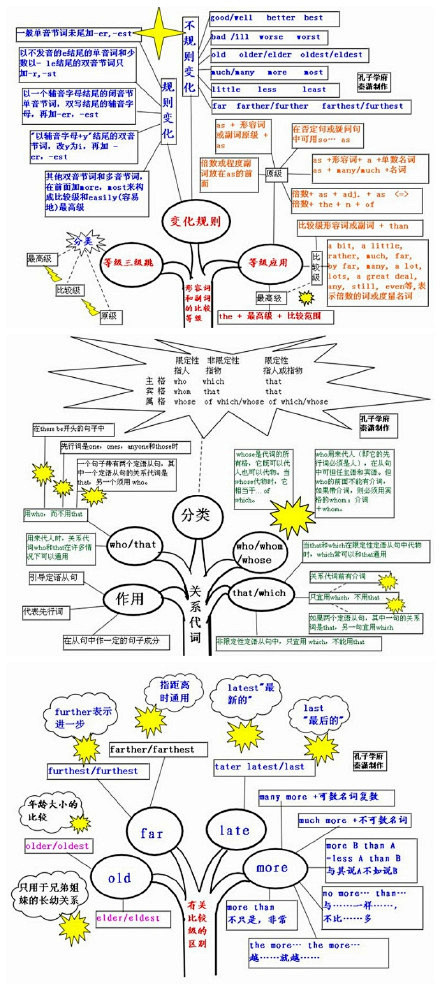 一般单音节词末尾加-er,-est
以不发音的e结尾的单音词和少
数以- le结尾的双音节词只
加-r,-st
以一个辅音字母结尾的闭音节
单音节词，双写结尾的辅音字
母，再加-er, -est
"以辅音字母+y"结尾的双音
节词，改y为i，再加 -
er, -est
其他双音节词和多音节词，
在前面加more, most来构
成比较级和easily(容易
地)最高级
规则变化
不规则变化
good/well better best
bad /ill worse worst
old older/elder oldest/eldest
much/many more most
little less least
far farther/further farthest/furthest
孔子学府
秦潇制作
变化规则
as + 形容词
或副词原级 +
as
在否定句或疑问句
中可用so… as
倍数或程度副
词放在as的前
面
原级
as +形容词+ a +单数名词
as + many/much +名词
倍数+ as + adj. + as <=>
倍数+ the + n + of
分类
最高级
比较级
原级
等级三级跳
等级应用
形容词
和副词
的比较
等级
比较级形容词或副词 + than
比较级
a bit, a little,
rather, much, far,
by far, many, a lot,
lots, a great deal,
any, still, even等,表
示倍数的词或度量名词
最高级
the + 最高级 + 比较范围
限定性 非限定性 限定性
指人 指物 指人或指物
主 格 who which that
宾 格 whom that that
属 格 whose of which/whose of which/whose
孔子学府
秦潇制作
在there be开头的句子中
先行词是one, ones, anyone和those时
一个句子带有两个定语从句，其
中一个定语从句的关系代词是
that，另一个须用 who。
用who，而不用that
用来代人时，关系代
词who和that在许多情
况下可以通用
who/that
分类
whose是代词的所
有格，它既可以代
人也可以代物。当
whose代物时，它
相当于…of
which。
who用来代人（即它的先
行词必须是人），在从句
中可担任主语和宾语。但
who的前面不能有介词，
如果带介词，则必须用宾
格的whom：介词
+whom。
who/whom
/whose
当that和which在限定性定语从句中代物
时，which常可以和that通用
引导定语从句
代表先行词
在从句中作一定的句子成分
作用
关系代词
that/which
关系代词前有介词
只宜用which，不用that
如果两个定语从句，其中一句的关系
词是that，另一句宜用which
非限定性定语从句中，只宜用 which，不能用that
further表示
进一步
furthest/furthest
指距离
时通用
farther/farthest
latest"最
新的"
last
"最后的"
tater latest/last
孔子学府
秦潇制作
年龄大小的
比较
older/oldest
只用于兄弟姐
妹的长幼关系
elder/eldest
far
late
old
more
有关
比较
级的
区别
many more +可数名词复数
much more +不可数名词
more B than A
=less A than B
与其说A不如说B
no more… than…
与……一样……，
不比……多
more than
不只是，非常
the more… the more…
越……就越……